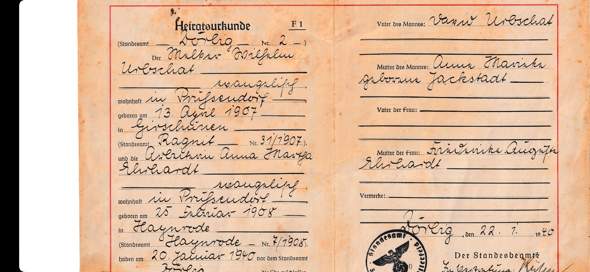 Heiratsurkunde F 1
(Standesamt Dörlig Nr. 2 — )
Der Melker Wilhelm
Urbschat
evangelisch
wohnhaft in Prüßendorf
geboren am 13 April 1907
in Girschunen
(Standesamt Ragnit Nr. 31/1907)
und die Arbeiterin Anna Martha
Ehrhardt
evangelisch
wohnhaft in Prüßendorf
geboren am 25 Februar 1908
in Haynrode
(Standesamt Haynrode — Nr. 7/1908)
haben am 20. Januar 1940 vor dem Standesamt
Dörlig
Vater des Mannes: David Urbschat
Mutter des Mannes: Anna Marike
geborene Jackstadt
Vater der Frau:
Mutter der Frau: Friederike Auguste
Ehrhardt
Vermerke:
Dörlig, den 22. 1. 1940
Standesamt
Der Standesbeamte